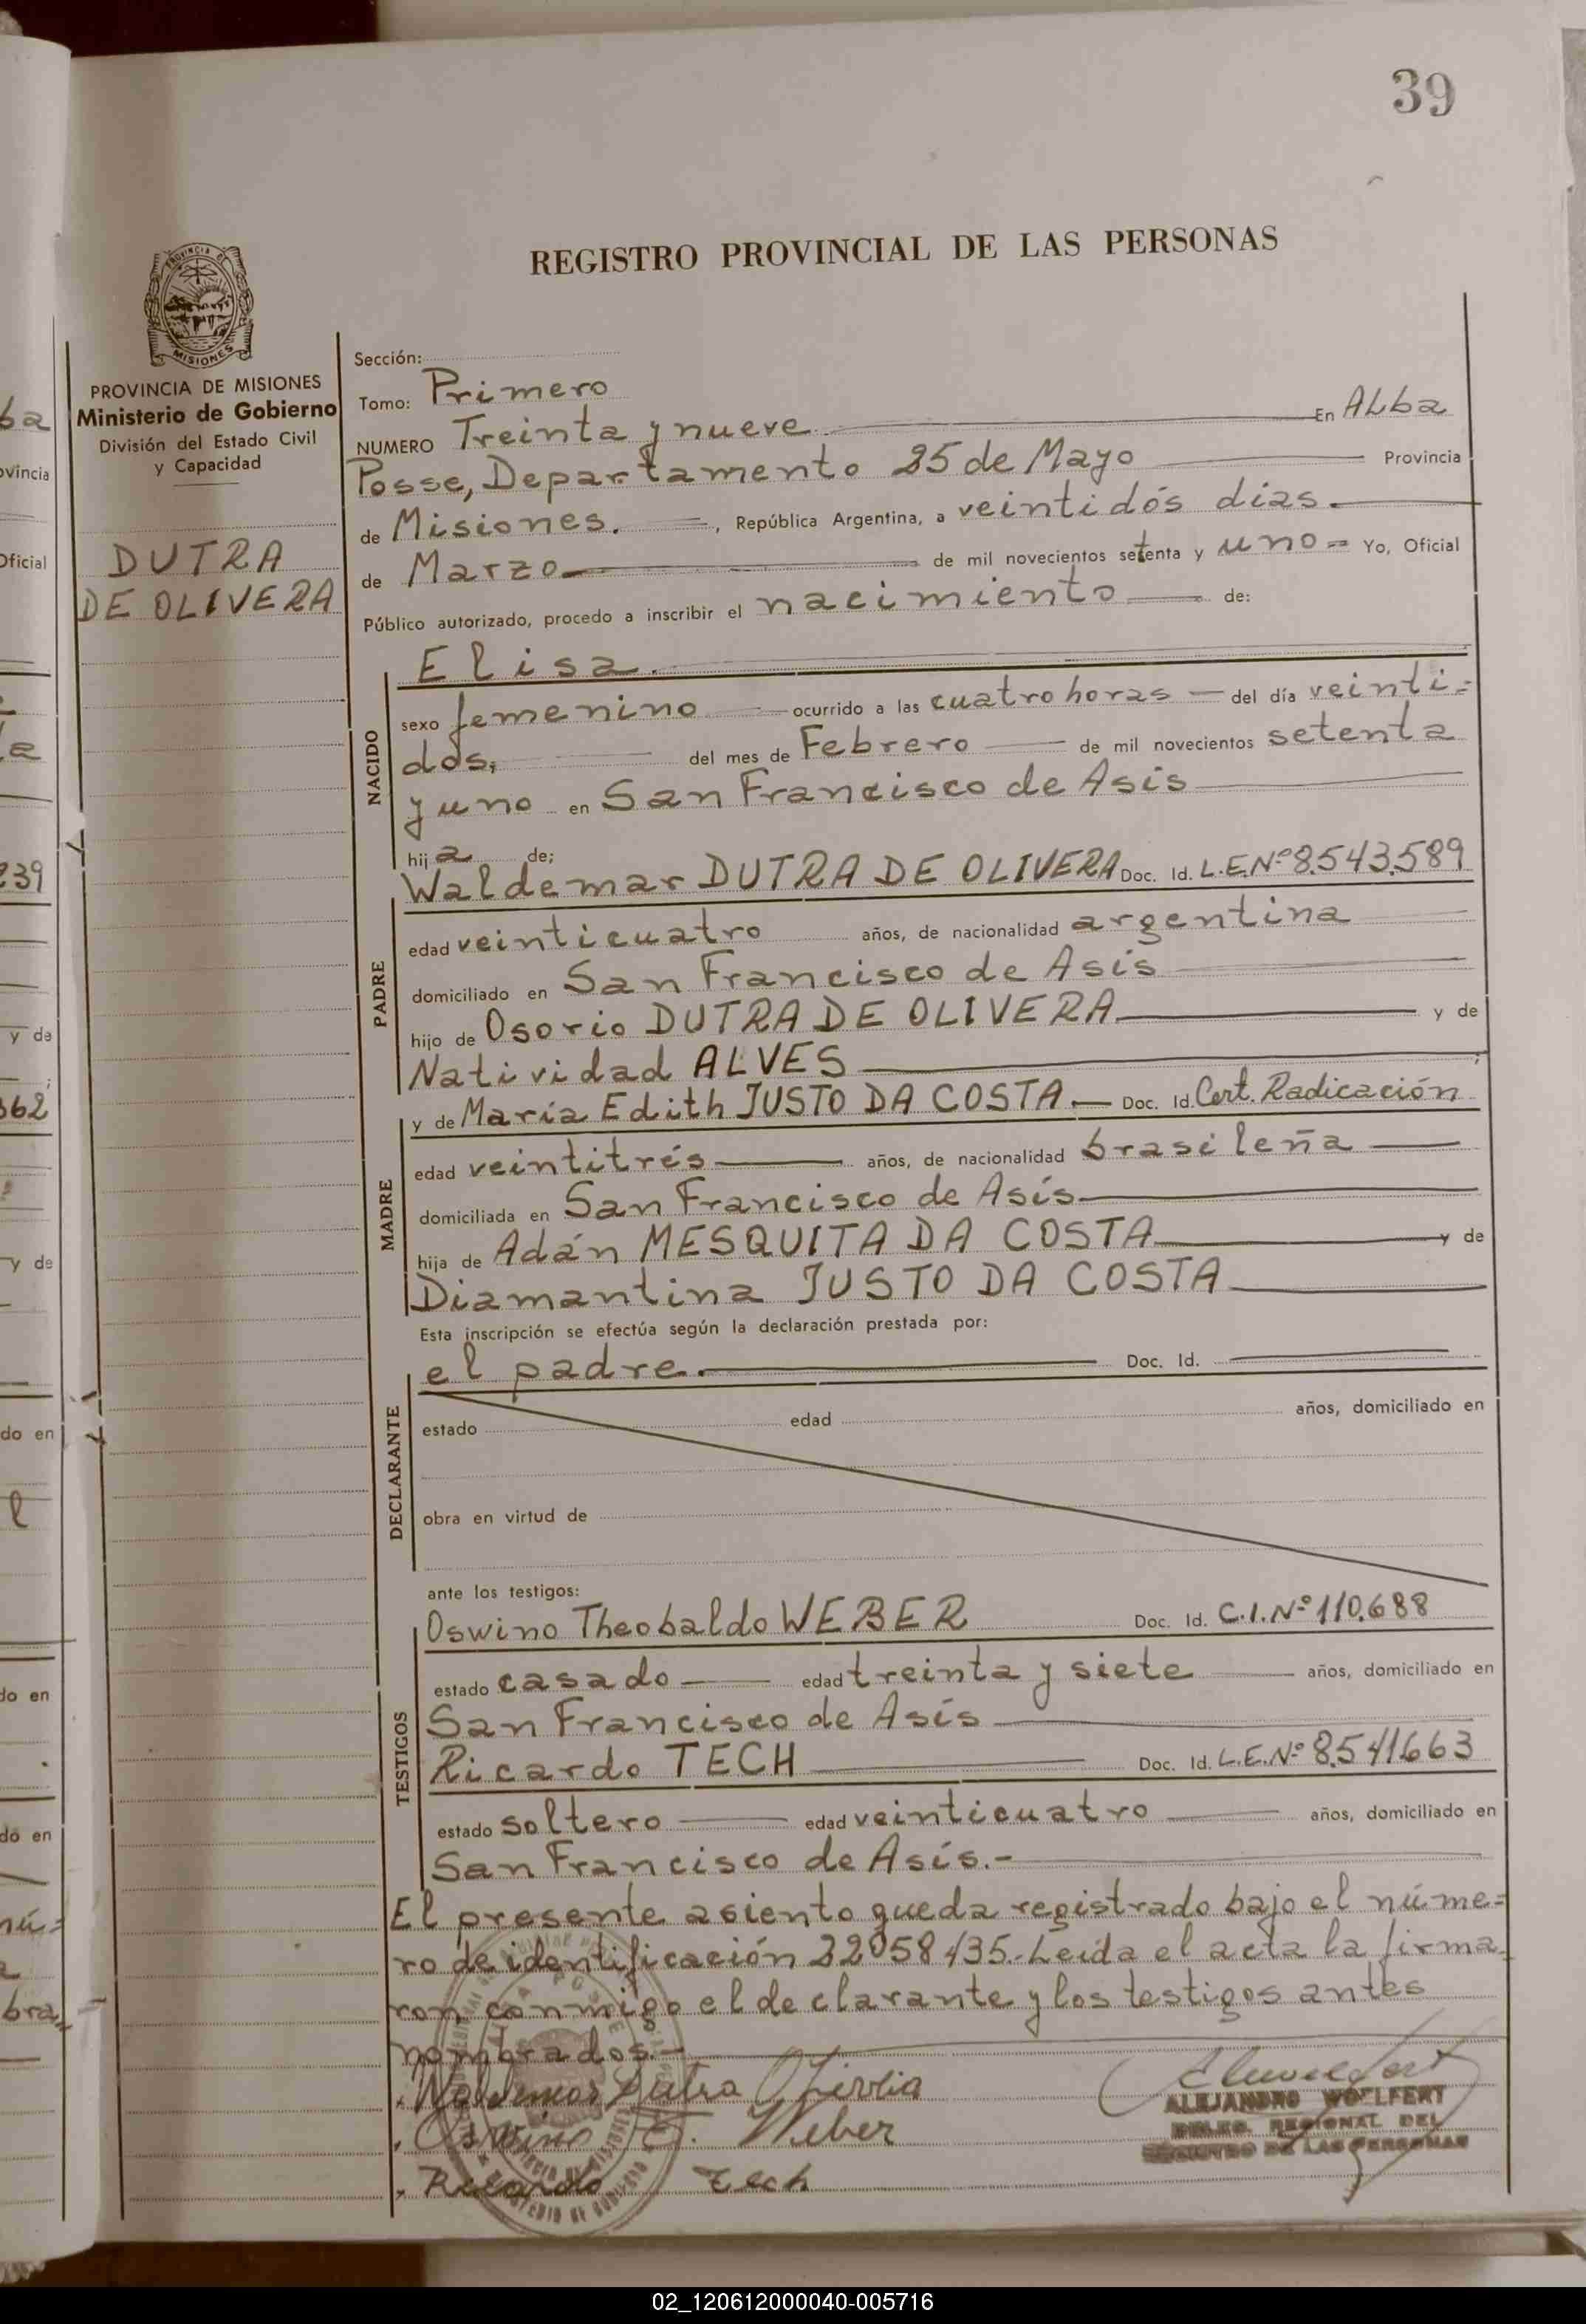 39
REGISTRO PROVINCIAL DE LAS PERSONAS
PROVINCIA DE MISIONES
Ministerio de Gobierno
División del Estado Civil
y Capacidad
DUTRA
DE OLIVERA
Sección:
Tomo: Primero
NUMERO Treinta y nueve En ALba
Posse, Departamento 25 de Mayo Provincia
de Misiones. , República Argentina, a veintidós días
de Marzo de mil novecientos setenta y uno = Yo, Oficial
Público autorizado, procedo a inscribir el nacimiento de:
NACIDO
Elisa.
sexo femenino ocurrido a las cuatro horas — del día veinti=
dós, del mes de Febrero de mil novecientos setenta
y uno en San Francisco de Asís
hija de;
Waldemar DUTRA DE OLIVERA Doc. Id. L.E.Nº 8.543.589
PADRE
edad veinticuatro años, de nacionalidad argentina
domiciliado en San Francisco de Asís
hijo de Osorio DUTRA DE OLIVERA y de
Natividad ALVES ;
y de María Edith JUSTO DA COSTA.— Doc. Id. Cert. Radicación
MADRE
edad veintitrés años, de nacionalidad brasileña
domiciliada en San Francisco de Asís
hija de Adán MESQUITA DA COSTA y de
Diamantina JUSTO DA COSTA
Esta inscripción se efectúa según la declaración prestada por:
el padre. Doc. Id.
DECLARANTE
estado edad años, domiciliado en
obra en virtud de
ante los testigos:
Oswino Theobaldo WEBER Doc. Id. C.I.Nº 110.688
TESTIGOS
estado casado edad treinta y siete años, domiciliado en
San Francisco de Asís
Ricardo TECH Doc. Id. L.E.Nº 8.541663
estado soltero edad veinticuatro años, domiciliado en
San Francisco de Asís.-
El presente asiento queda registrado bajo el núme=
ro de identificación 22058435.- Leída el acta la firma
ron conmigo el declarante y los testigos antes
nombrados.-
Waldemar Dutra
Oswino T. Weber
Ricardo Tech
ALEJANDRO WOELFERT
DELEG. REGIONAL DEL
REGISTRO DE LAS PERSONAS
02_120612000040-005716